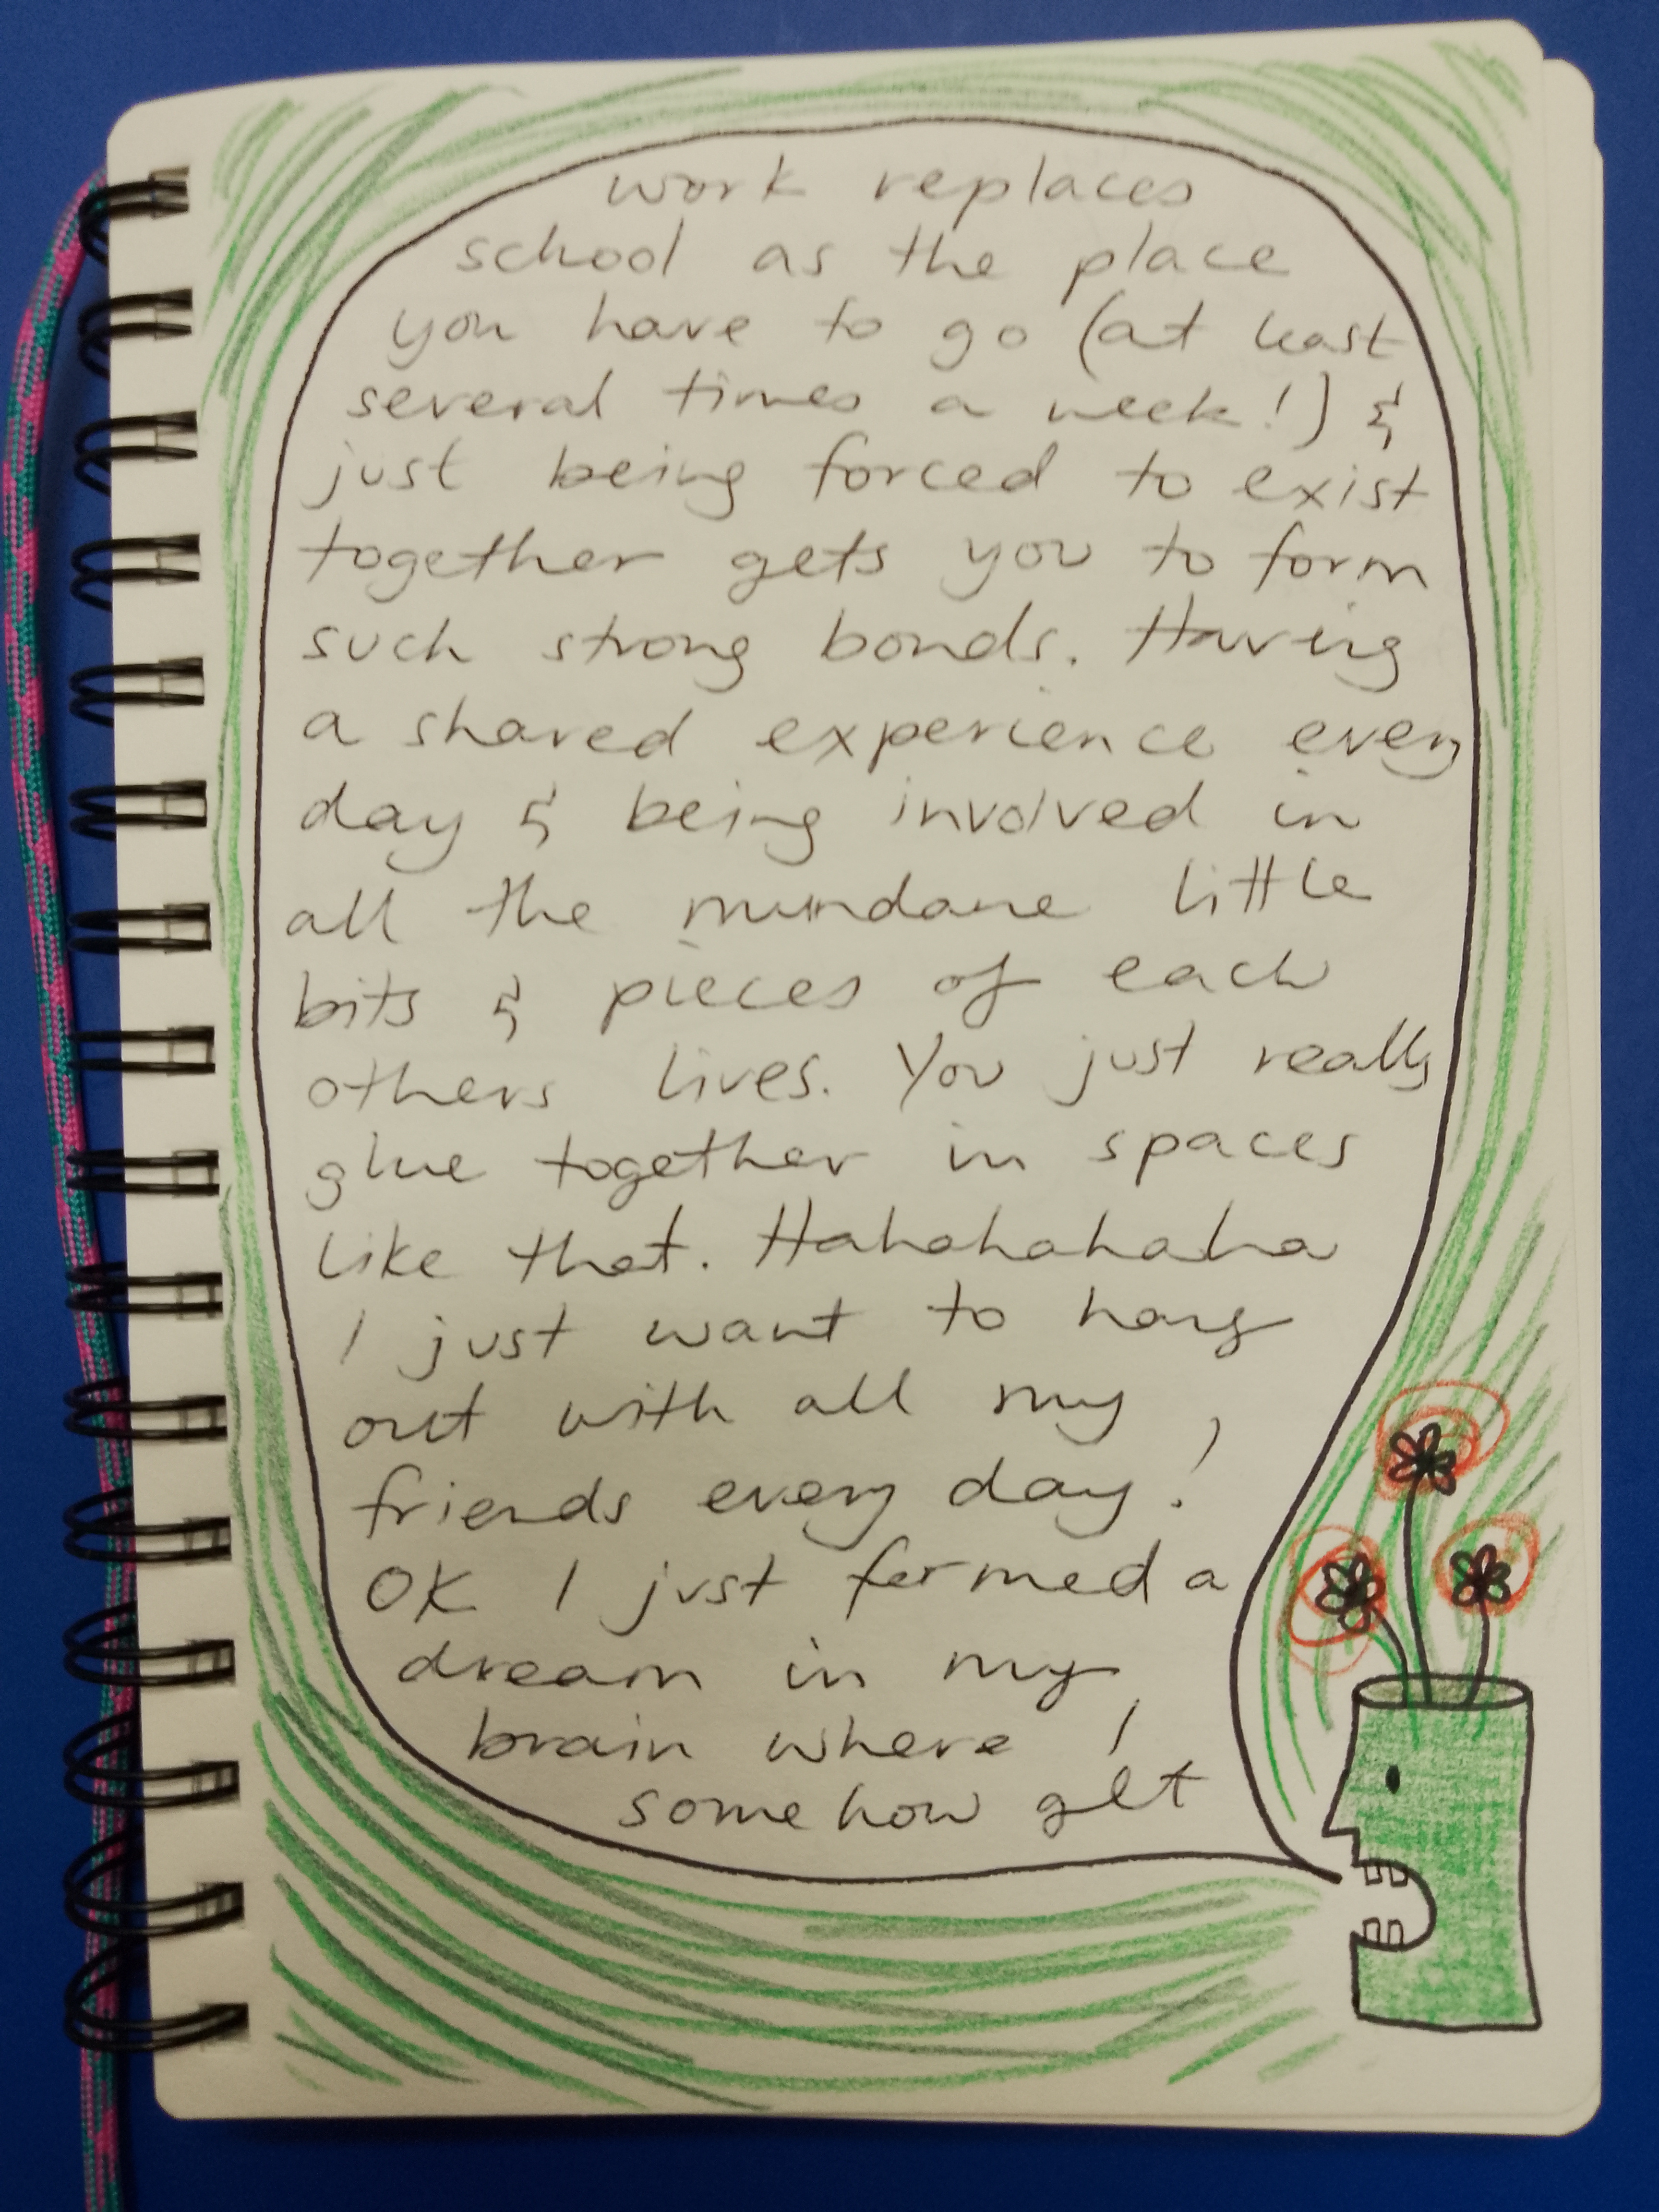 work replaces
school as the place
you have to go (at least
several times a week!) &
just being forced to exist
together gets you to form
such strong bonds. Having
a shared experience every
day & being involved in
all the mundane little
bits & pieces of each
others lives. You just really
glue together in spaces
like that. Hahahahahaha
I just want to hang
out with all my
friends every day!
OK I just formed a
dream in my
brain where I
somehow get